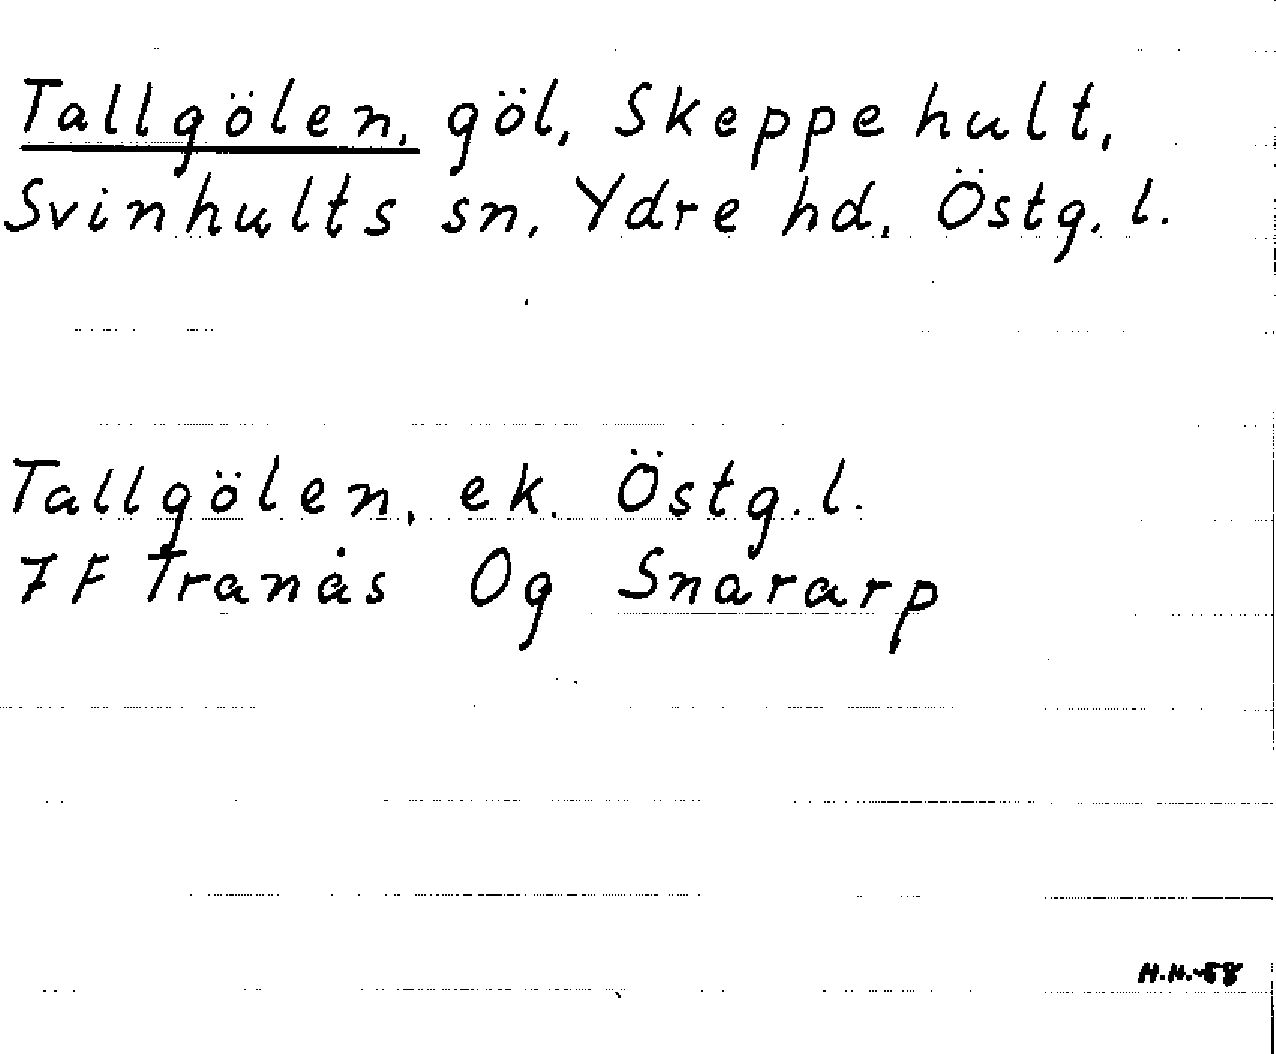 Tallgölen, göl, Skeppehult,
Svinhults sn, Ydre hd, Östg. l.
Tallgölen, ek. Östg. l.
7 F Tranås Og Snararp
H.H.-58